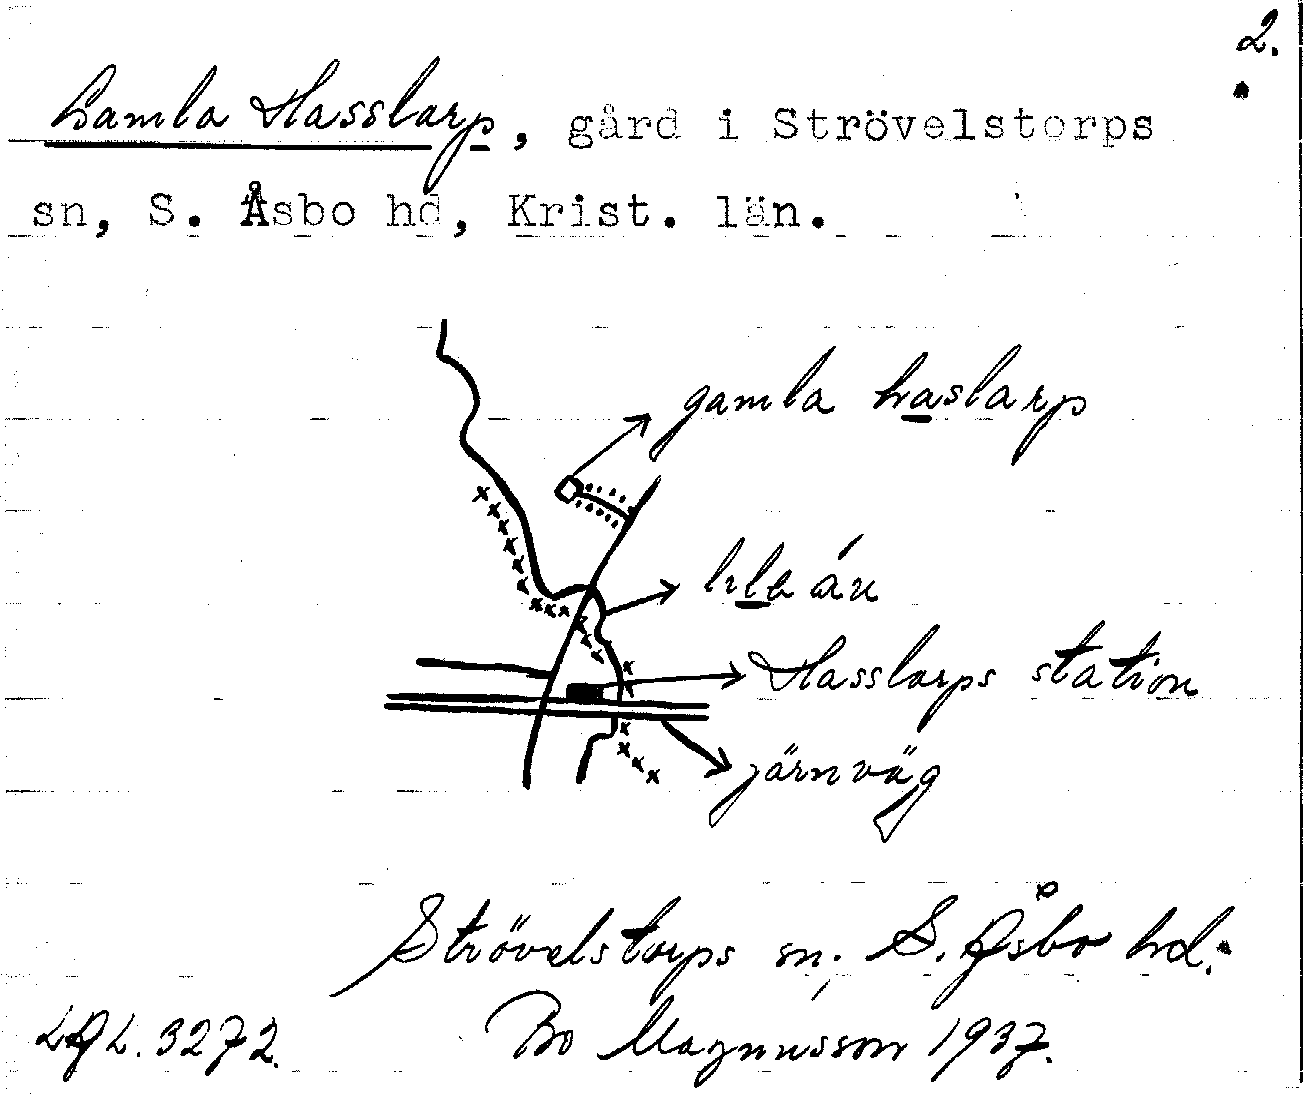 2.
Gamla Hasslarp, gård i Strövelstorps
sn, S. Åsbo hd, Krist. län.
gamla haslarp
ån
Hasslarps station
järnväg
Strövelstorps sn. S. Åsbo hd.
LAL. 3272. Bo Magnusson 1937.